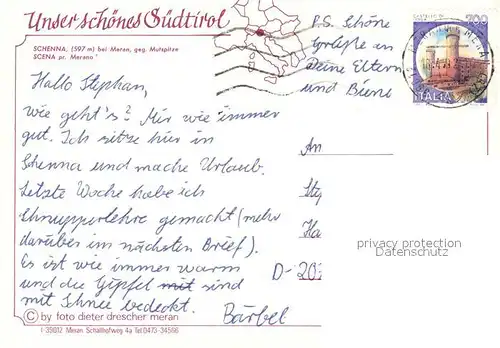 Unser schönes Südtirol
SCHENNA, (597 m) bei Meran, geg. Mutspitze
SCENA pr. Merano
Hallo Stephan,
wie geht's? Mir wie immer
gut. Ich sitze hier in
Schenna und mache Urlaub.
Letzte Woche habe ich
Schnupperlehre gemacht (mehr
darüber im nächsten Brief).
Es ist wie immer warm
und die Gipfel mit sind
mit Schnee bedeckt.
Bärbel
P.S. Schöne
Grüsse an
Deine Eltern
und Biene
700
ITALIA
An
D-
privacy protection
Datenschutz
© by foto dieter drescher meran
I-39012 Meran Schaffhofweg 4a Tel.0473-34566